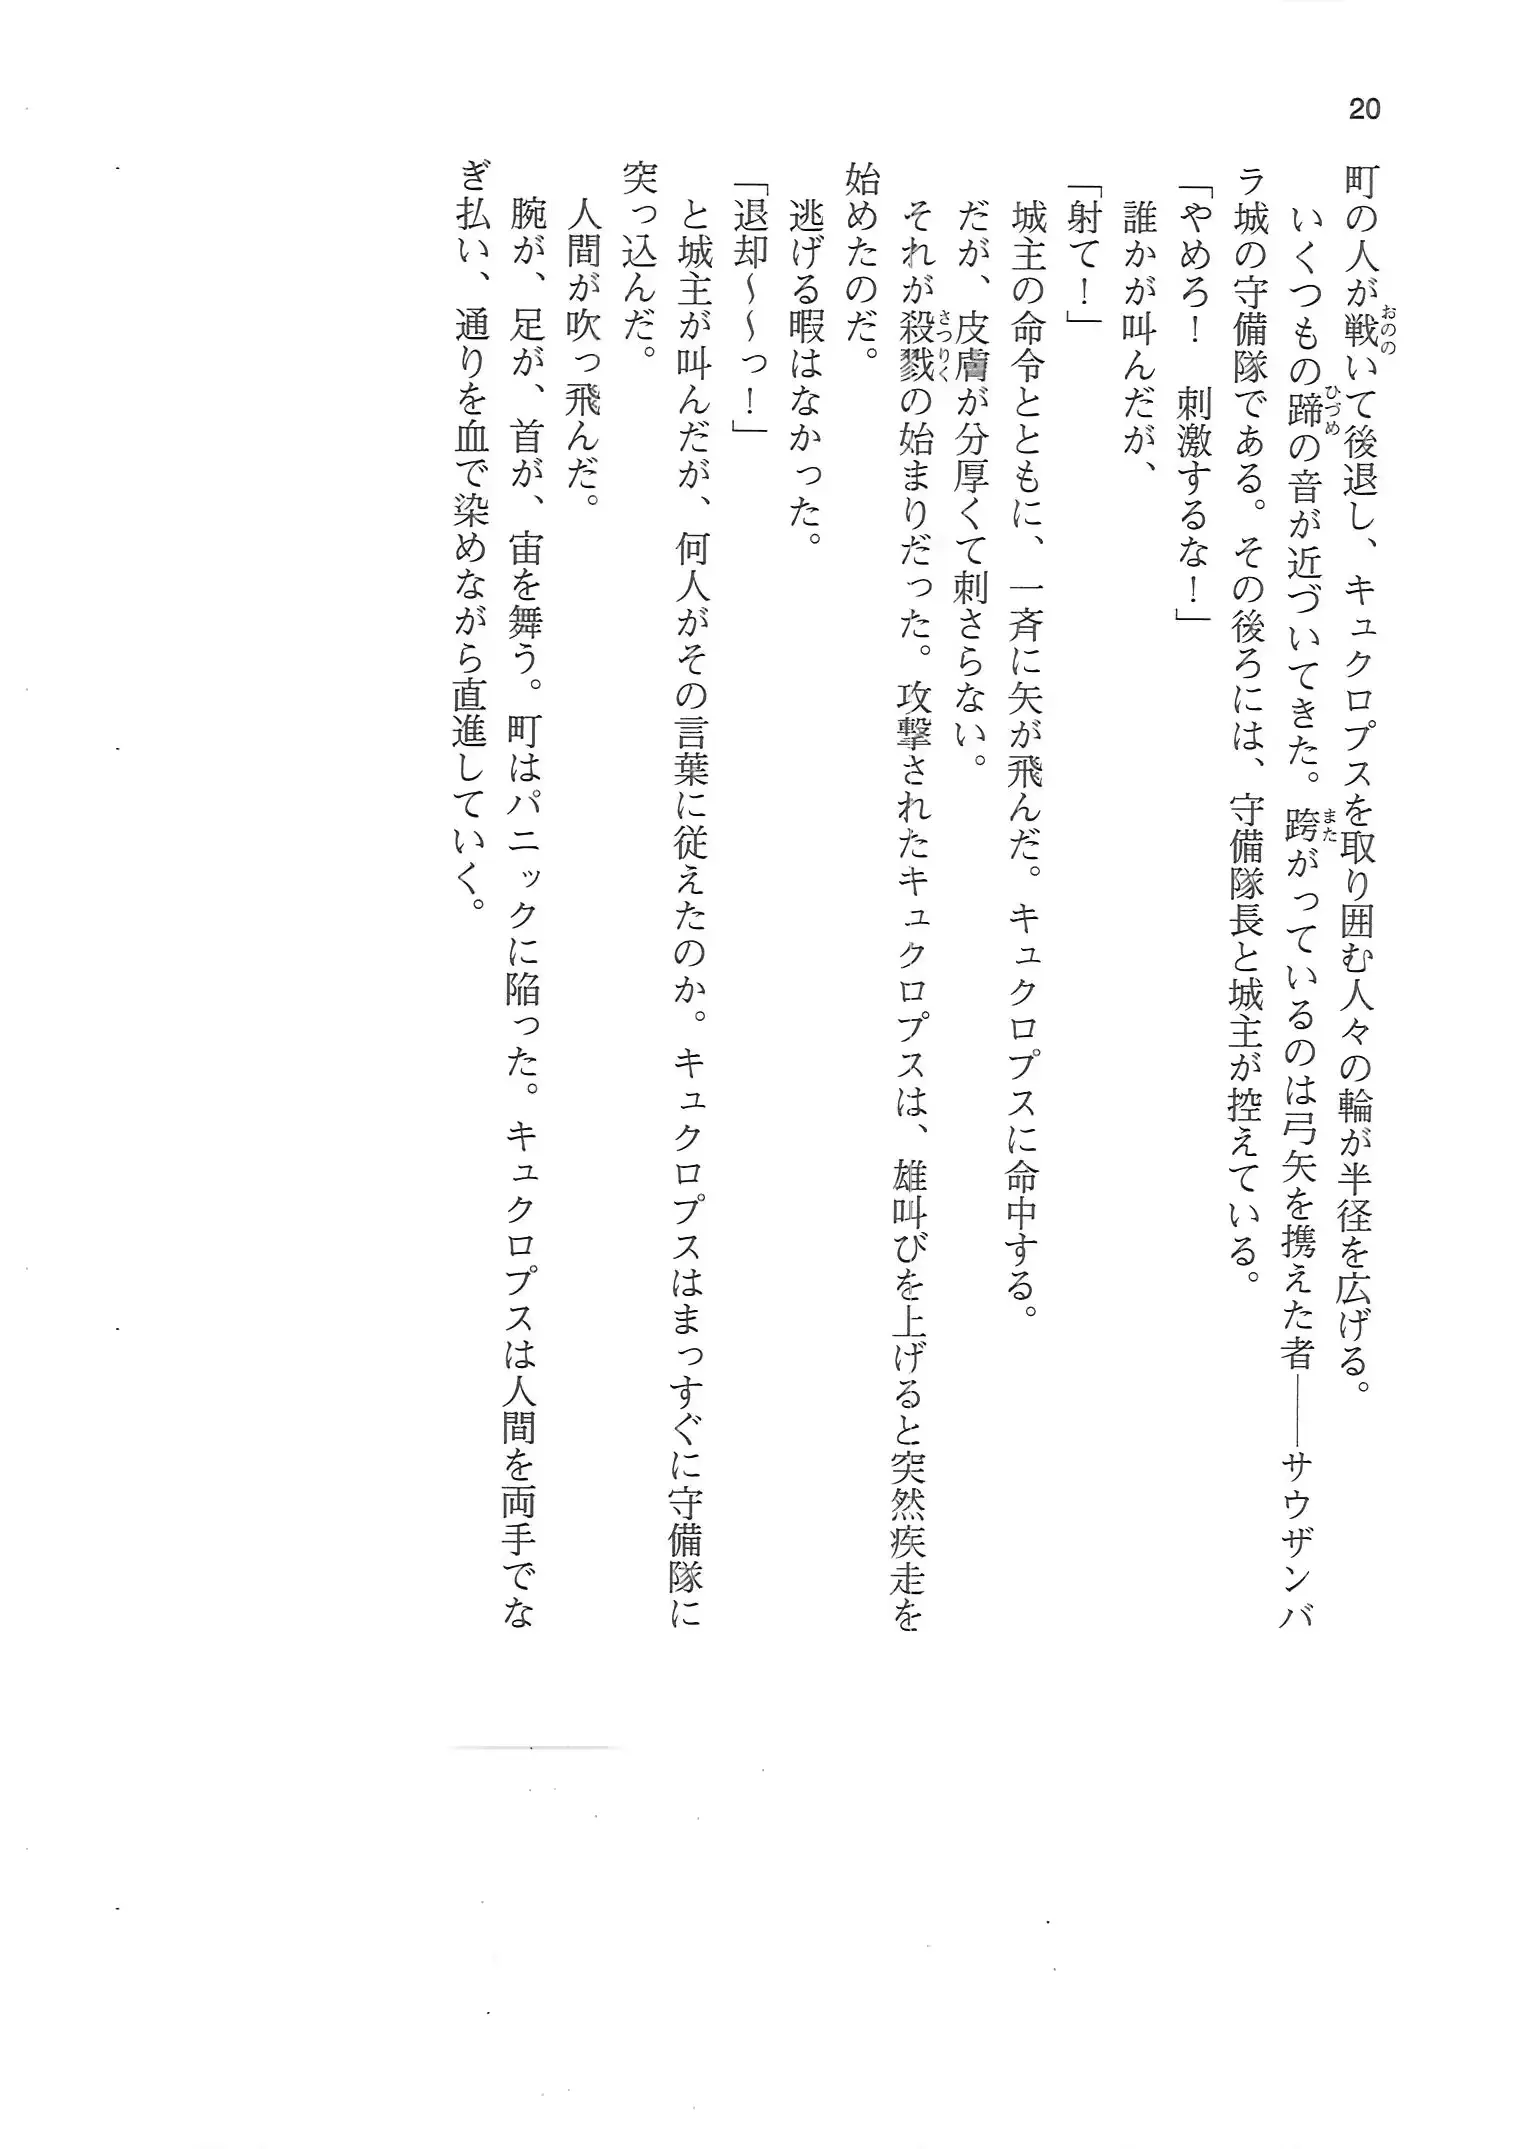 20
町の人が戦いて後退し、キュクロプスを取り囲む人々の輪が半径を広げる。
おのの
いくつもの蹄の音が近づいてきた。跨がっているのは弓矢を携えた者――サウザンバ
ひづめ
また
ラ城の守備隊である。その後ろには、守備隊長と城主が控えている。
「やめろ！　刺激するな！」
誰かが叫んだが、
「射て！」
城主の命令とともに、一斉に矢が飛んだ。キュクロプスに命中する。
だが、皮膚が分厚くて刺さらない。
それが殺戮の始まりだった。攻撃されたキュクロプスは、雄叫びを上げると突然疾走を
さつりく
始めたのだ。
逃げる暇はなかった。
「退却～～っ！」
と城主が叫んだが、何人がその言葉に従えたのか。キュクロプスはまっすぐに守備隊に
突っ込んだ。
人間が吹っ飛んだ。
腕が、足が、首が、宙を舞う。町はパニックに陥った。キュクロプスは人間を両手でな
ぎ払い、通りを血で染めながら直進していく。